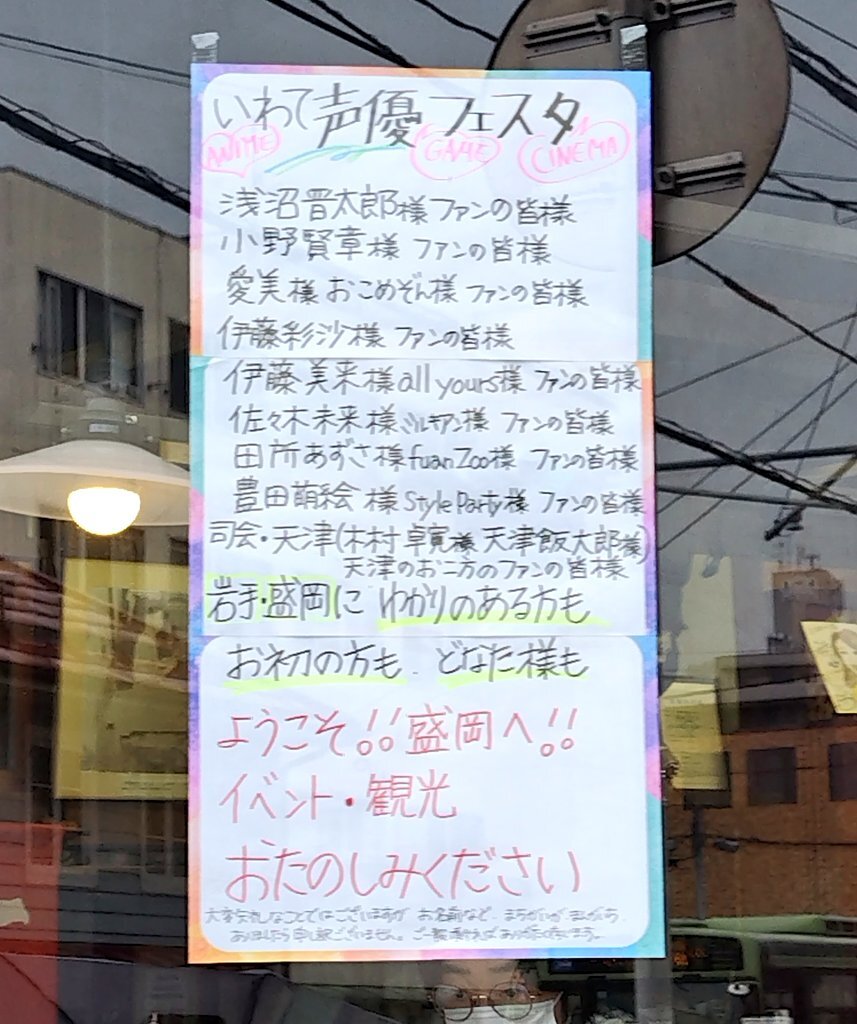 いわて声優フェスタ
ANIME GAME CINEMA
浅沼晋太郎様 ファンの皆様
小野賢章様 ファンの皆様
愛美様 おこめぞん様 ファンの皆様
伊藤彩沙様 ファンの皆様
伊藤美来様 all yours様 ファンの皆様
佐々木未来様 ミルキアン様 ファンの皆様
田所あずさ様 fuan Zoo様 ファンの皆様
豊田萌絵様 Style Party様 ファンの皆様
司会・天津(木村卓寛様 天津飯大郎様)
天津のお二方のファンの皆様
岩手・盛岡に ゆかりのある方も
お初の方も どなた様も
ようこそ!! 盛岡へ!!
イベント・観光
おたのしみください
大変失礼なことではございますが お名前など、まちがいが
ありましたら申し訳ございません。ご一報